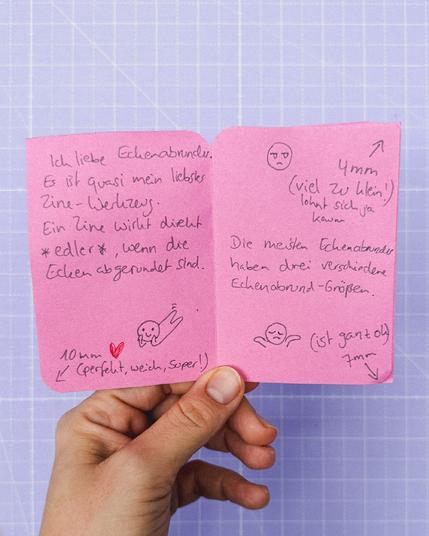 Ich liebe Eckenabrunder.
Es ist quasi mein liebstes
Zine-Werkzeug.
Ein Zine wirkt direkt
*edler*, wenn die
Ecken abgerundet sind.
10mm ❤
(perfekt, weich, super!)
4mm
(viel zu klein!)
lohnt sich ja
kaum
Die meisten Eckenabrunder
haben drei verschiedene
Eckenabrund-Größen.
(ist ganz ok)
7mm